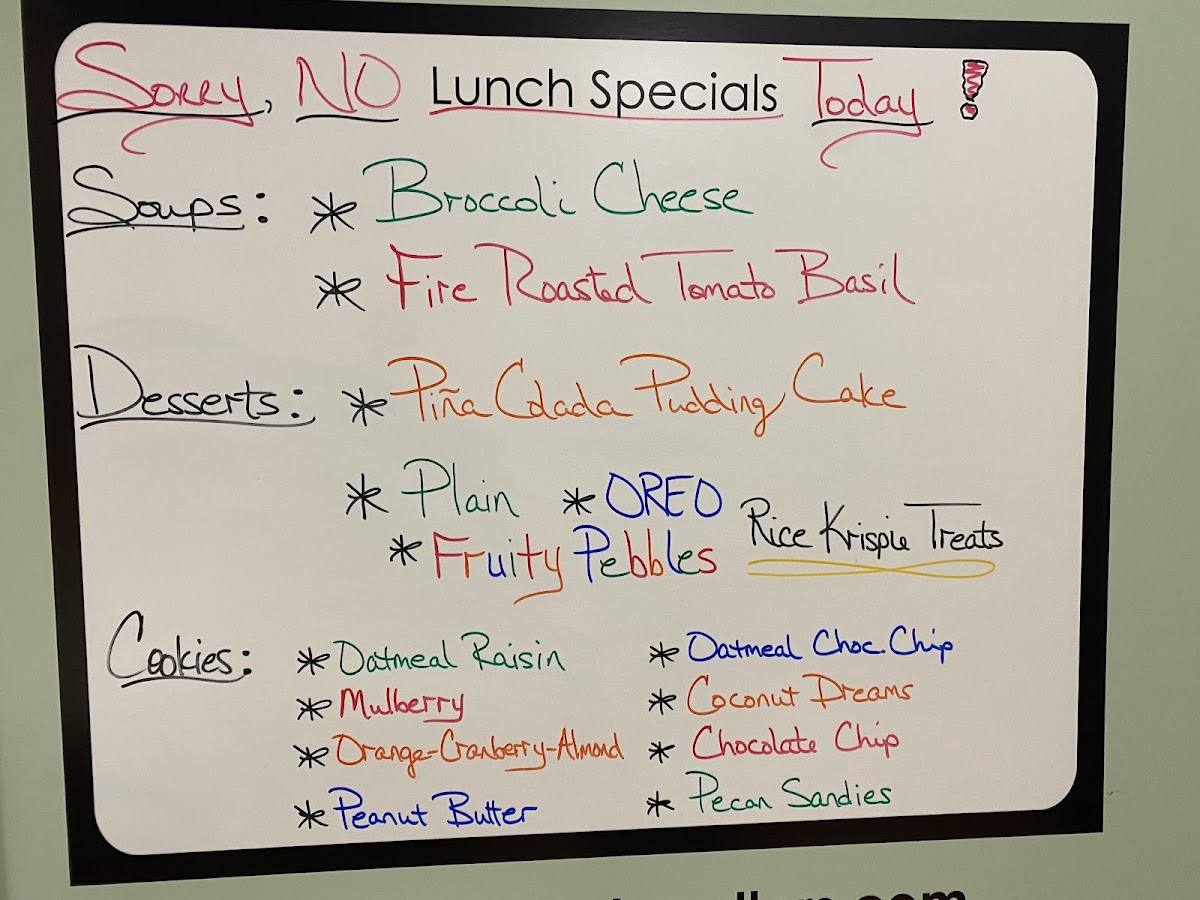 Sorry, NO Lunch Specials Today!
Soups: * Broccoli Cheese
* Fire Roasted Tomato Basil
Desserts: * Piña Colada Pudding Cake
* Plain * OREO
* Fruity Pebbles Rice Krispie Treats
Cookies: * Oatmeal Raisin * Oatmeal Choc. Chip
* Mulberry * Coconut Dreams
* Orange-Cranberry-Almond * Chocolate Chip
* Peanut Butter * Pecan Sandies